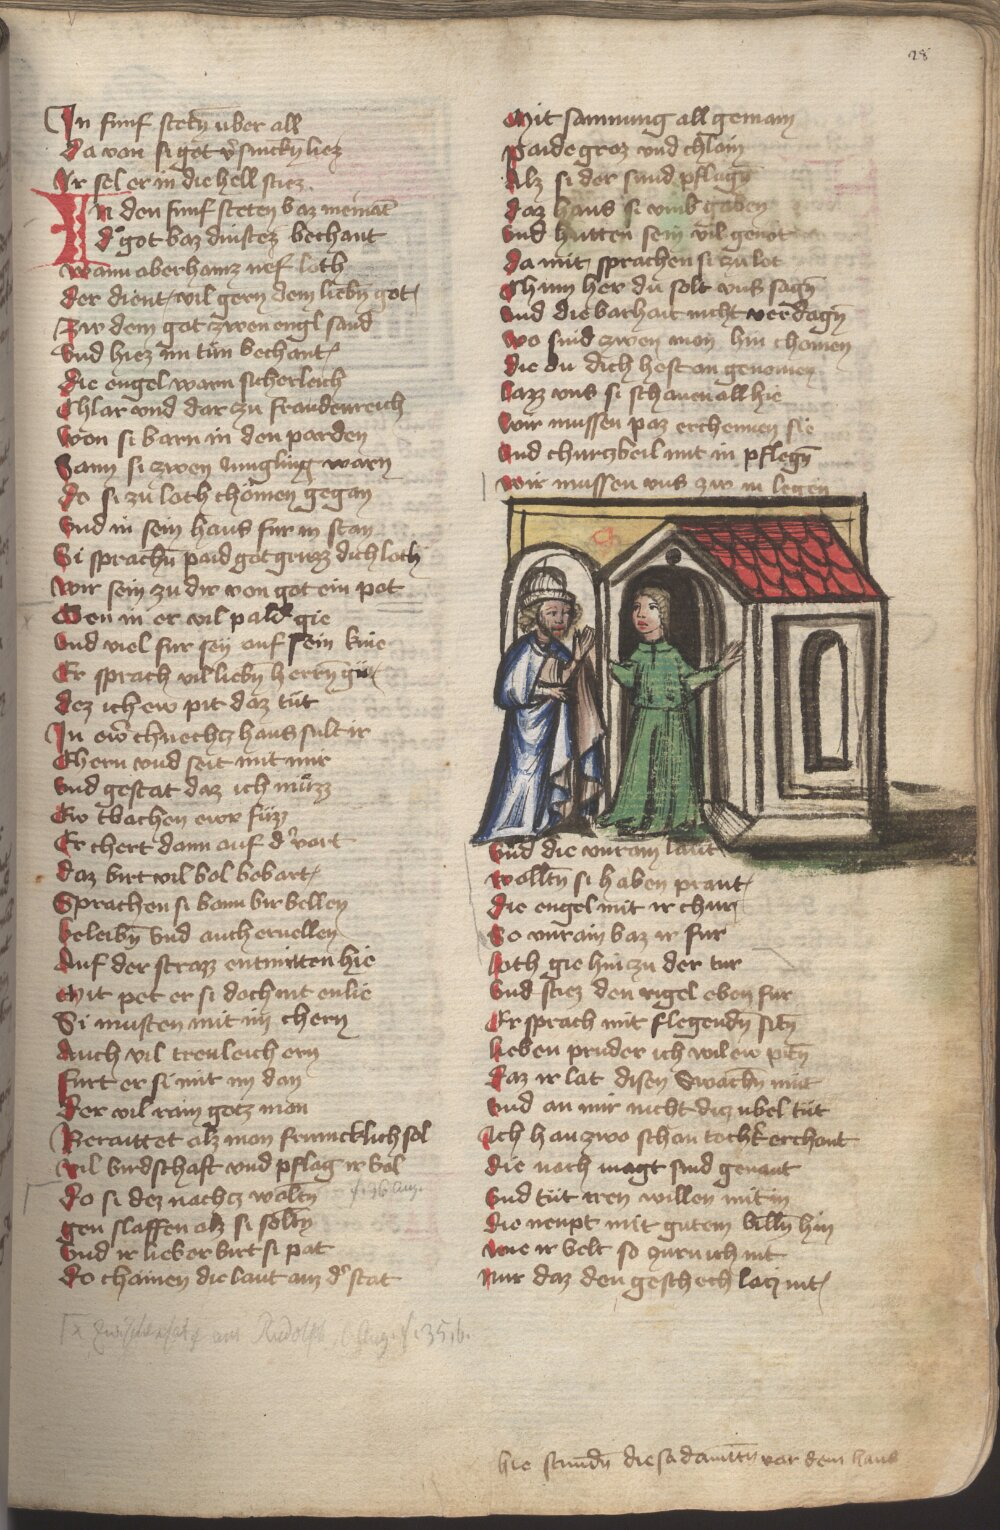 28
In funf steten uber all
Da von si got v̓sinckn̄ liez
Ir sel er in die hell stiez
In den funf steten baz meinat̄
d᷒ got baz dinstez bechant
Wann aberhamz nef loth
Der dient vil gern dem liebn̄ got
Zw dem got zwen engl sand
Und hiez im tün bechant
Die engel warn sicherleich
Chlar und dar zu fraudenreich
Won si barn in den parden
Sam si zwen iungling warn
Do si zu loth chomen gegan
Und in sein haus fur in stan
Si sprachn̄ paid got gruzz dich loth
Wir sein zu dir von got ein pot
Gen in er vil pald gie
Und viel fur sey auf sein knie
Er sprach vil liebn̄ herrn̄ gut
Dez ich ew pit daz tüt
In ew̓ chnechtz haus sult ir
Chern und seit mit mir
Und gestat daz ich müzz
Ew tbachen ewr füzz
Er chert dann auf d᷒ vart
Daz birt vil bol bebart
Sprachen si bann bir bellen
Beleibn̄ und auch ervellen
Auf der strazz enmitten hie
Mit pet er si doch nit enlie
Si musten mit im chern
Auch vil treuleich ern
Furt er si mit im dan
Der vil rain gotz man
Peraittet alz man frumcklich sol
Vil birdschaft und pflag ir bol
Do si dez nachtz woltn̄
Gen slaffen alz si soltn̄
Und ir lieber birt si pat
Do chamen die laut aus d᷒ stat
Mit samnung all gemain
Paide groz und chlain
Alz si der sund pflagn̄
Daz haus si umb gaben
Und hutten sein vil genot
Da mit sprachen si zu lot
Chum her du solt uns sagn̄
Und die barhait nicht verdagn̄
Wo sind zwen man hin chomen
Die du dich hest an genomen
Lazz uns si schauen all hie
Wir mussen paz erchennen sie
Und churzbeil mit in pflegn̄
Wir mussen uns zw in legen
Und die unrain laut
Woltn̄ si haben praut
Die engel mit ir chur
So unrain baz ir fur
Loth gie hin zu der tur
Und stiez den rigel eben fur
Er sprach mit flegendn̄ sitn̄
Lieben pruder ich wil ew pitn̄
Daz ir lat disen swachn̄ müt
Und an mir nicht diz ubel tüt
Ich han zwo schon tocht̓ erchant
Die noch magt sind genant
Und tüt iren willen mit in
Die nempt mit gutem billn̄ hin
Wie ir belt so zurn ich nit
Nur daz den geschech laitz nit
hie stundn̄ die sodamittn̄ vor dem haus